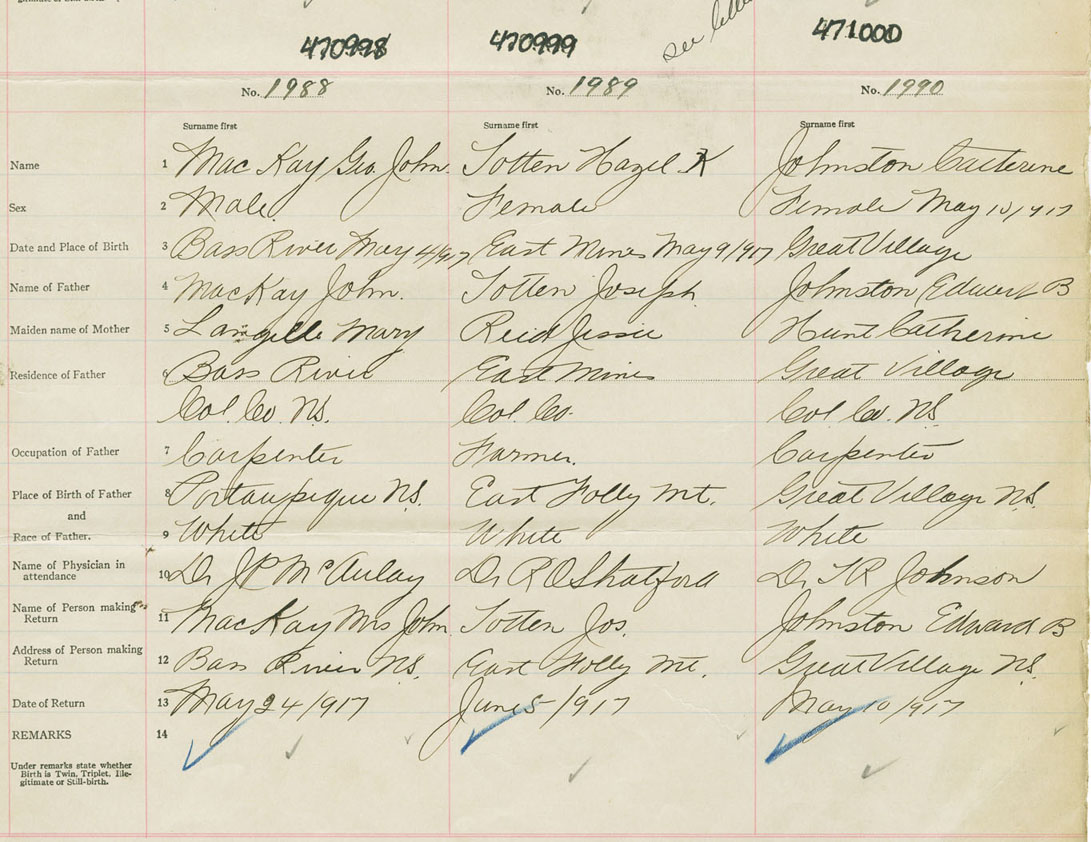 gitimate or Still-birth.
470998 470999 see 471000
No. 1988 No. 1989 No. 1990
Surname first Surname first Surname first
Name 1 MacKay Geo. John. Totten Hazel K Johnston Catherine
Sex 2 Male Female Female May 10/917
Date and Place of Birth 3 Bass River May 4/917 East Mines May 9/917 Great Village
Name of Father 4 MacKay John. Totten Joseph Johnston Edward B
Maiden name of Mother 5 Langille Mary Reid Jessie Hunt Catherine
Residence of Father 6 Bass River East Mines Great Village
Col. Co. N.S. Col. Co. Col. Co. N.S.
Occupation of Father 7 Carpenter Farmer. Carpenter
Place of Birth of Father 8 Portaupique N.S. East Folly Mt. Great Village N.S.
and
Race of Father. 9 White White White
Name of Physician in attendance 10 Dr J P McAulay Dr R O Shatford Dr T R Johnson
Name of Person making Return 11 MacKay Mrs John. Totten Jos. Johnston Edward B
Address of Person making Return 12 Bass River N.S. East Folly Mt. Great Village N.S.
Date of Return 13 May 24/917 June 5/917 May 10/917
REMARKS 14
Under remarks state whether
Birth is Twin, Triplet, Ille-
gitimate or Still-birth.